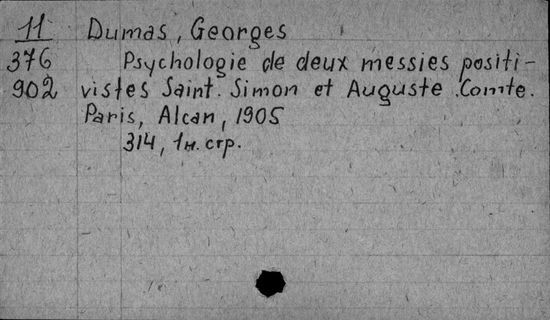 11 Dumas, Georges
376 Psychologie de deux messies positi-
902 vistes Saint. Simon et Auguste Comte.
Paris, Alcan, 1905
314, 1н. стр.